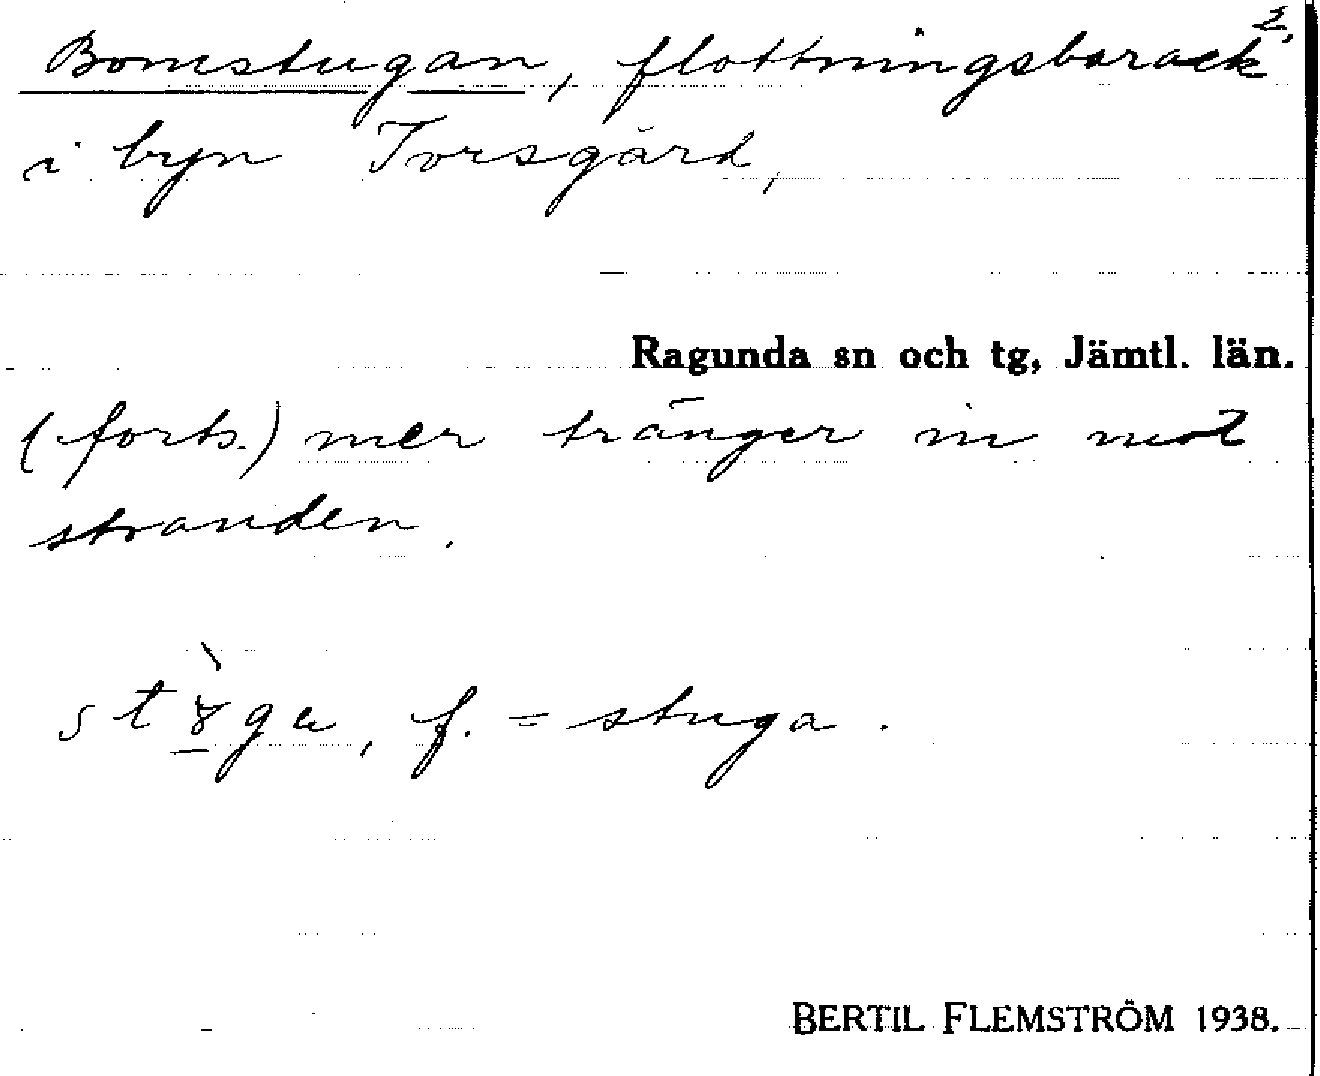 2,
Bomstugan, flottningsbarack
i byn Torsgård,
Ragunda sn och tg, Jämtl. län.
(forts.) mer tränger in mot
stranden.
f. = stuga.
BERTIL FLEMSTRÖM 1938.